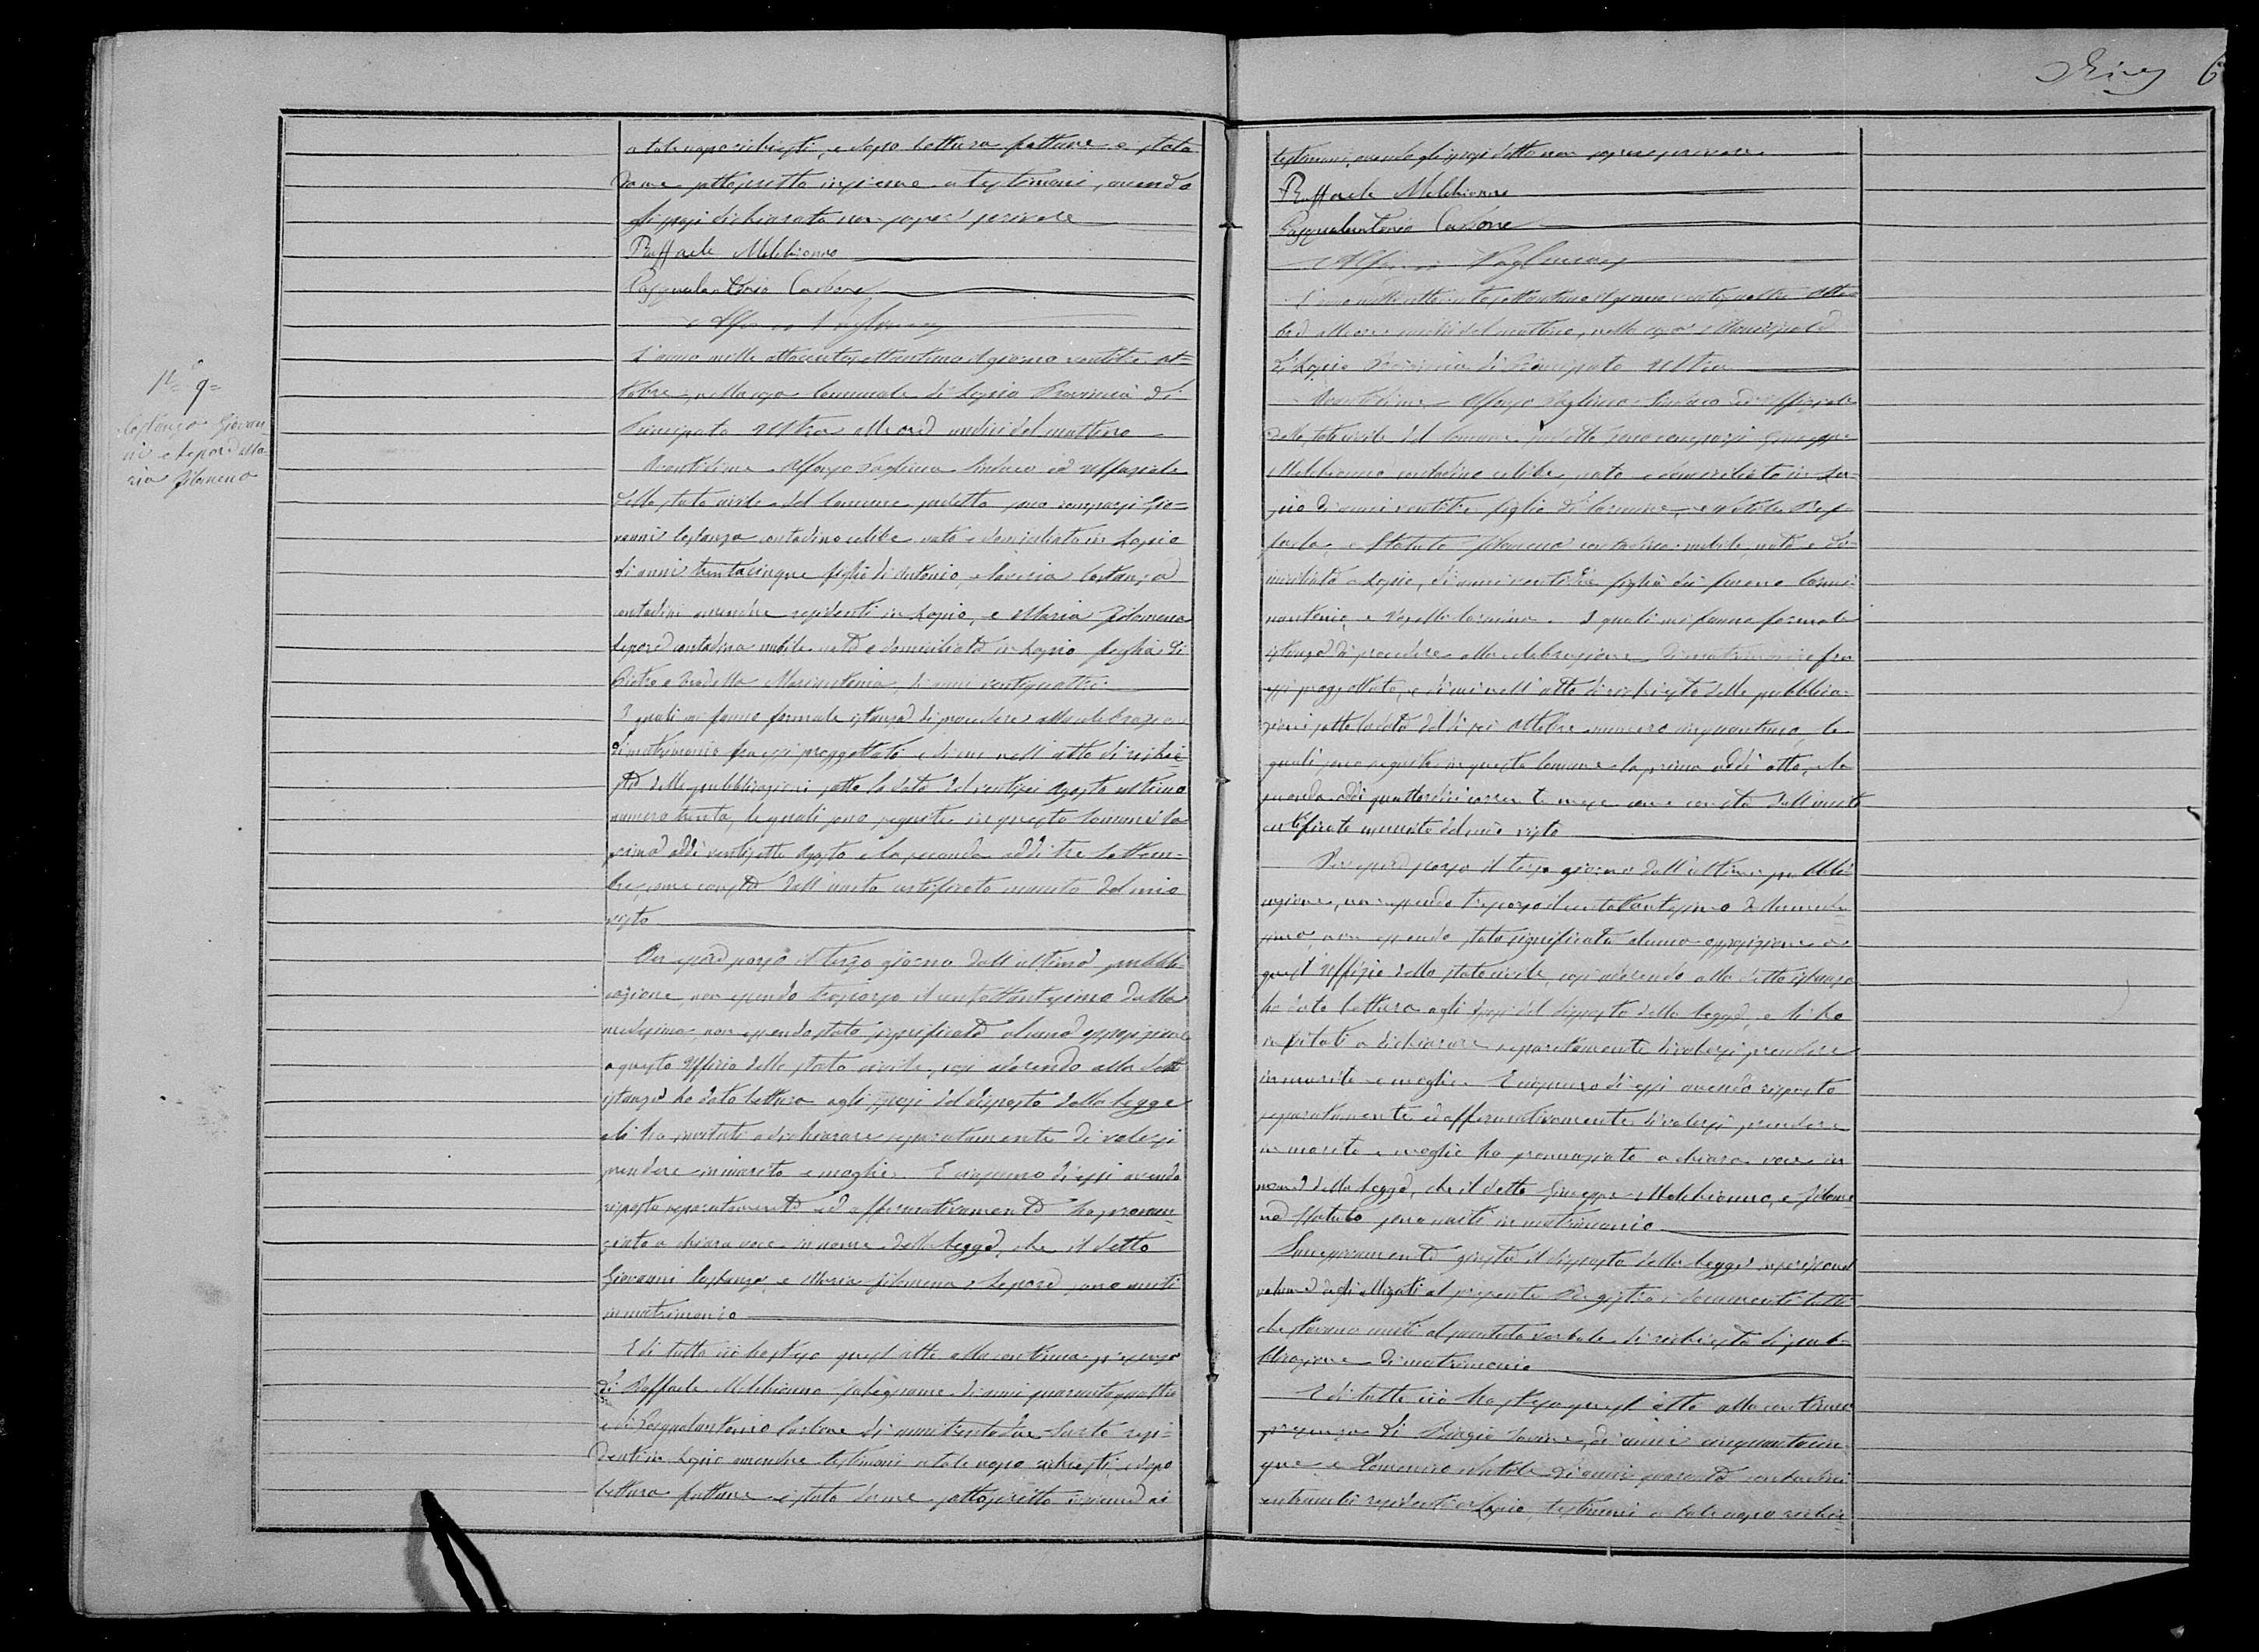 6
a tale uopo richiesti, e dopo lettura fattane è stato
da me sottoscritto insieme a testimoni, avendo
gli sposi dichiarato non sapere scrivere
Raffaele Melchionno
Pasqualantonio Carbone
N.º 9=
Costanzo Giovan
ni e Lepore Ma
ria Filomena
L'anno mille ottocento settantuno il giorno ventitre ot=
tobre nella casa Comunale di Lapio Provincia di
Principato Ultra alle ore undici del mattino
Avanti di me Alfonso Sindaco ed uffiziale
dello stato civile del Comune suddetto sono comparsi Gio=
vanni Costanzo contadino celibe nato e domiciliato in Lapio
di anni trentacinque figlio di Antonio, e Costanza
contadini residenti in Lapio, e Maria Filomena
Lepore contadina nubile nata e domiciliata in Lapio figlia di
Pietro e Mariantonia, di anni ventiquattro
I quali mi fanno formale istanza di procedere alla celebrazione
di matrimonio fra essi progettato e di cui nell'atto di richie=
sta delle pubblicazioni sotto la data del ventisei Agosto ultimo
numero trenta, le quali sono seguite in questo Comune la
prima addì ventisette Agosto e la seconda addì tre Settem=
bre, come consta dall'unito certificato munito del mio
visto
Per essere scorso il terzo giorno dall'ultima pubbli=
cazione, non essendo trascorso il centottantesimo dalla
medesima, non essendo stata significata alcuna opposizione
a questo Uffizio dello stato civile, così aderendo alla detta
istanza ho dato lettura agli sposi del disposto della legge
e li ho invitati a dichiarare separatamente di volersi
prendere in marito e moglie. E ciascuno di essi avendo
risposto separatamente ed affermativamente ho pronun=
ziato a chiara voce in nome della legge, che il detto
Giovanni Costanzo, e Maria Filomena Lepore sono uniti
in matrimonio
E di tutto ciò ho steso quest'atto alla continua presenza
di Raffaele Melchionno falegname di anni quarantaquattro
e di Pasqualantonio Carbone di anni trentadue Sarto resi=
denti in Lapio amendue testimoni a tale uopo richiesti, e dopo
lettura fattane è stato da me sottoscritto insieme ai
testimoni, avendo gli sposi detto non sapere scrivere
Raffaele Melchionno
Pasqualantonio Carbone
L'anno mille ottocento settantuno il giorno ventiquattro Otto=
bre alle ore undici del mattino, nella casa Municipale
di Lapio Provincia di Principato Ultra
Avanti di me Alfonso Sindaco ed Uffiziale
dello stato civile del Comune suddetto sono comparsi Giuseppe
Melchionno contadino celibe, nato e domiciliato in La=
pio di anni ventitre figlio di Carmine, e
e Statuto Filomena contadina nubile, nata e do=
miciliata a Lapio, di anni figlia di
e Carmina. I quali mi fanno formale
istanza di procedere alla celebrazione di matrimonio fra
essi progettato, e di cui nell'atto di richiesta delle pubblica=
zioni sotto la data del sei Ottobre numero cinquantuno, le
quali sono seguite in questo Comune la prima addì otto, e la
seconda addì quattordici corrente mese come consta dall'unito
certificato munito del mio visto
Per essere scorso il terzo giorno dall'ultima pubbli=
cazione, non essendo trascorso il centottantesimo dalla mede=
sima, non essendo stata significata alcuna opposizione a
quest'Uffizio dello stato civile, così aderendo alla detta istanza
ho dato lettura agli sposi del disposto della legge, e li ho
invitati a dichiarare separatamente di volersi prendere
in marito e moglie. E ciascuno di essi avendo risposto
separatamente ed affermativamente di volersi prendere
in marito e moglie ho pronunziato a chiara voce in
nome della legge, che il detto Giuseppe Melchionno, e Filome=
na Statuto sono uniti in matrimonio
Successivamente giusta il disposto della legge inserisco nel
volume degli allegati al presente Registro i documenti tutti
che stavano uniti al verbale di richiesta di pub=
blicazione di matrimonio
E di tutto ciò ho steso quest'atto alla continua
presenza di Biagio di anni cinquantacin=
que e Domenico di anni quaranta contadini
entrambi residenti a Lapio, testimoni a tale uopo richie=